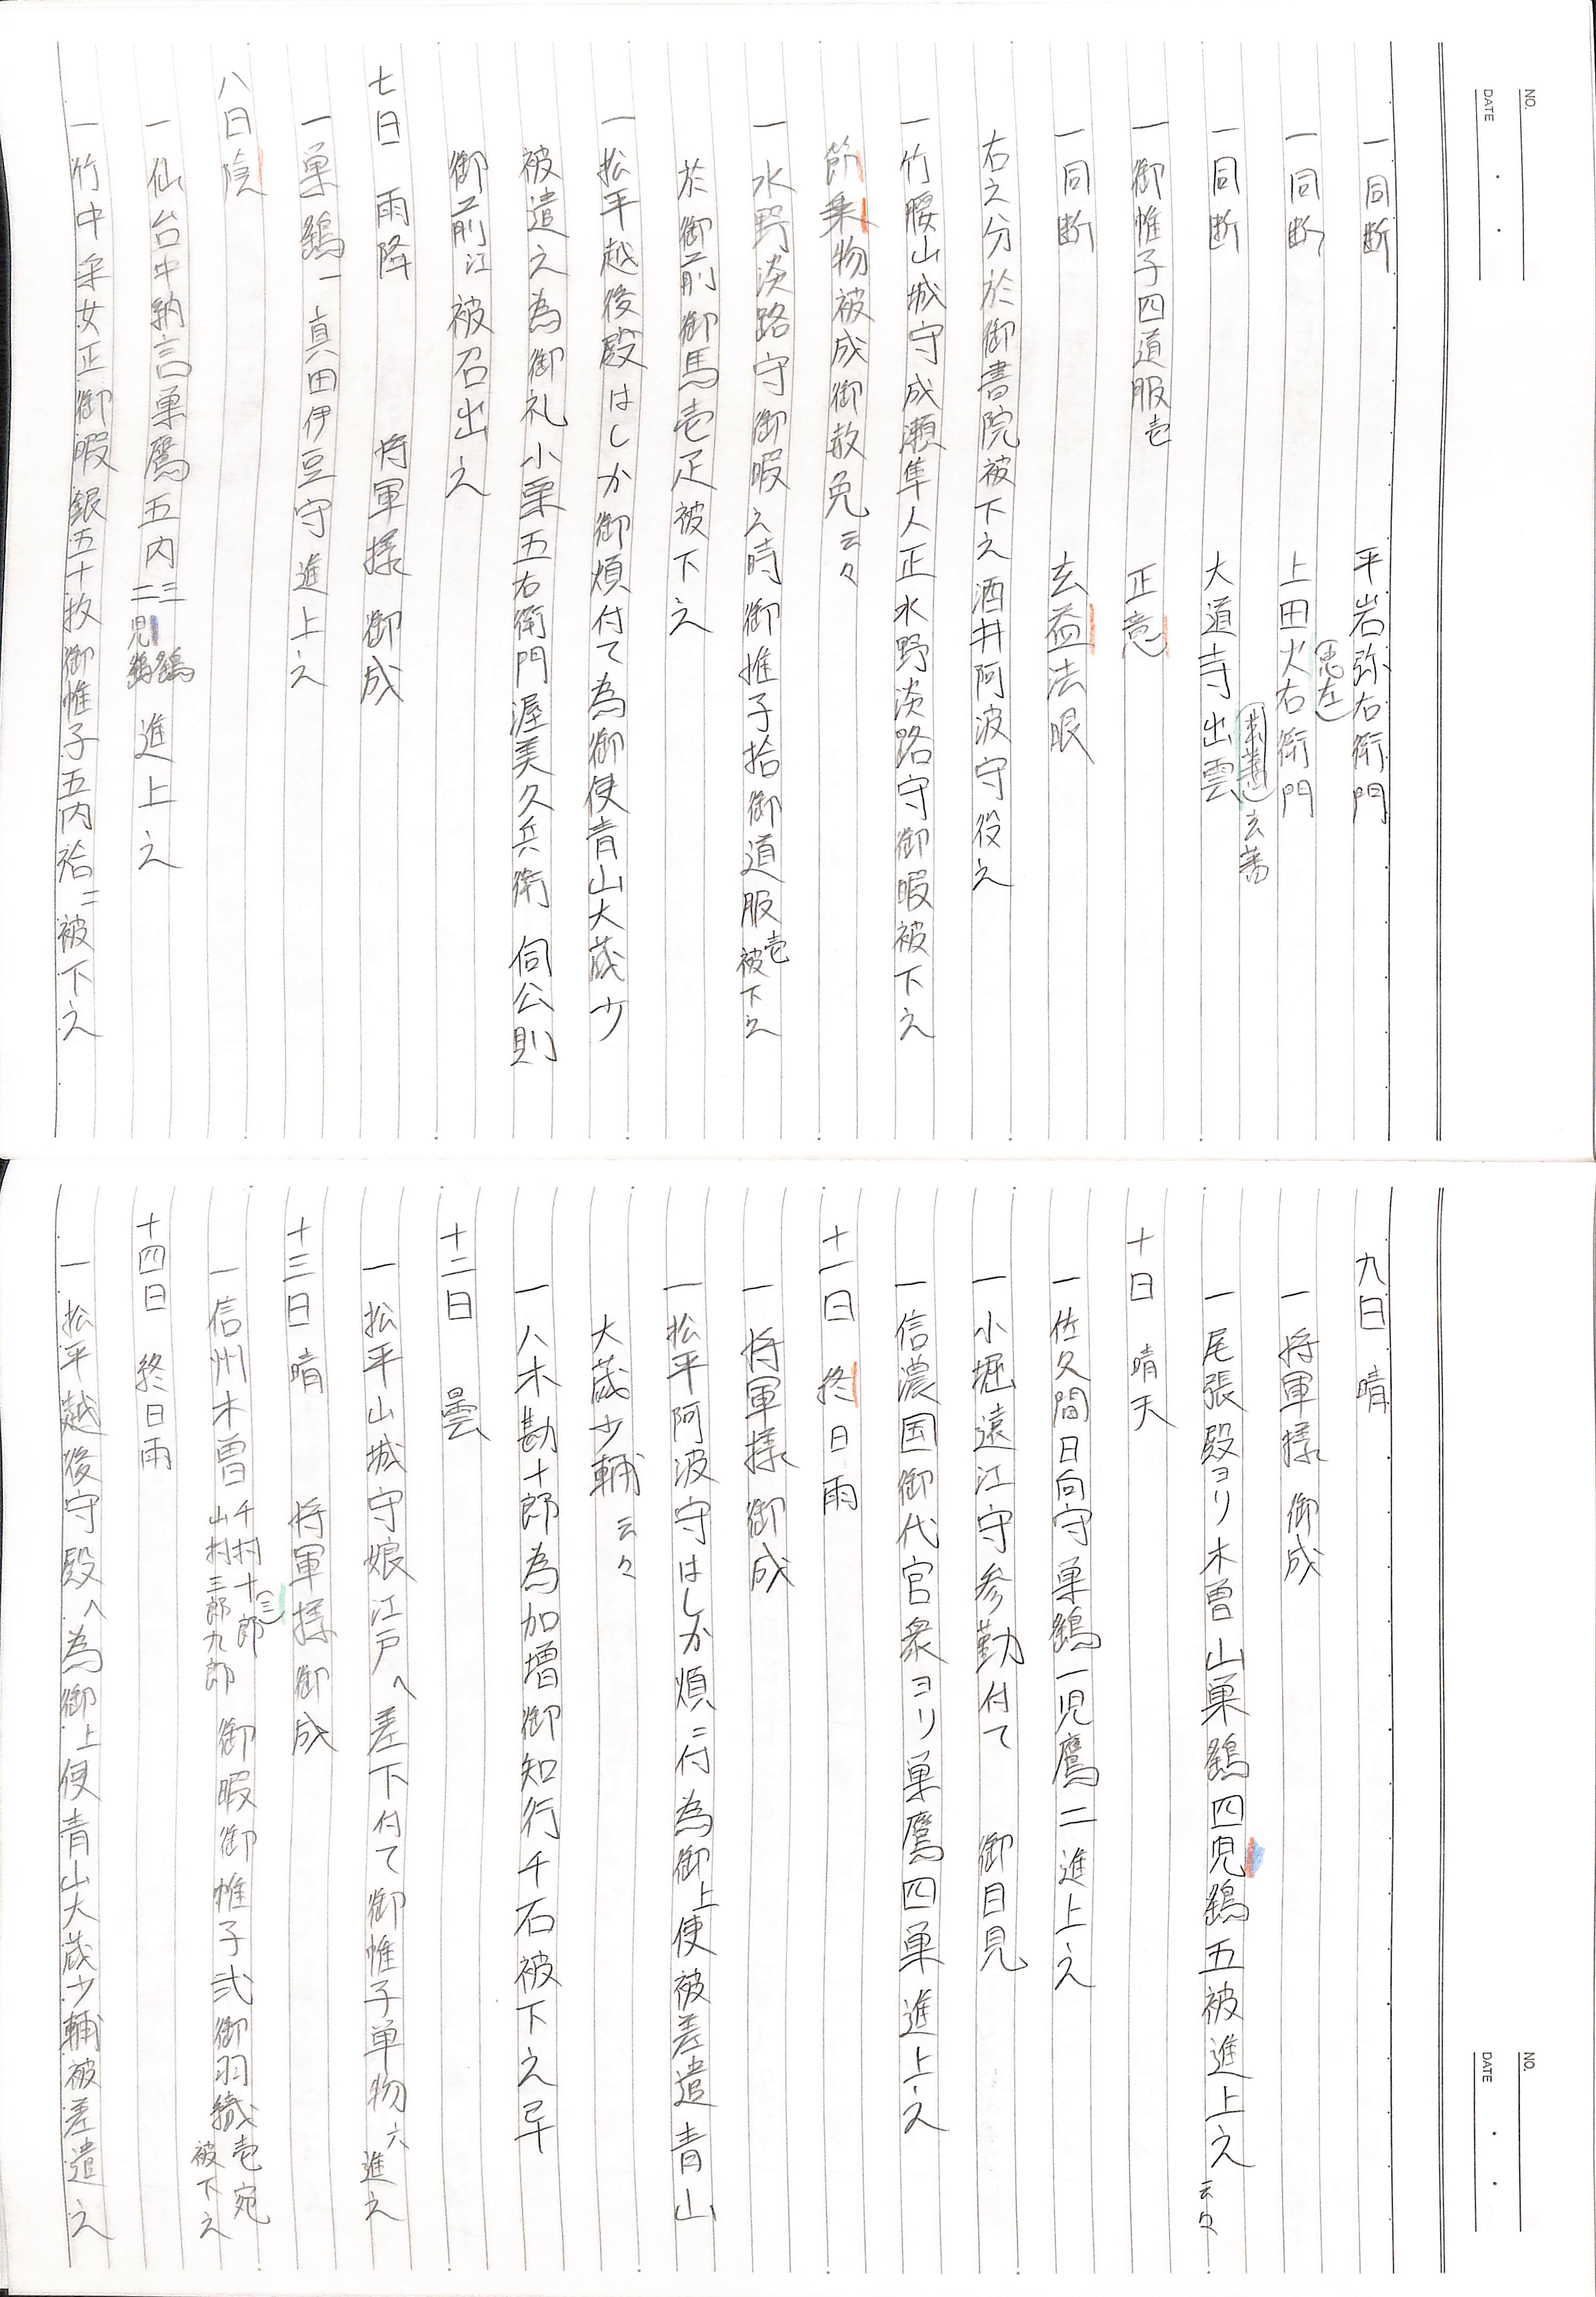 NO.
DATE
一同断　平岩弥右衛門
一同断　上田火右衛門
(忠左)
一同断　大道寺出雲
玄蕃
一御帷子四道服壱　正意
一同断　玄益法眼
右之分於御書院被下之酒井阿波守役之
一竹腰山城守成瀬隼人正水野淡路守御暇被下之
節乗物被成御赦免云々
一水野淡路守御暇之時御惟子拾御道服壱被下之
於御前御馬壱疋被下之
一松平越後殿はしか御煩付て為御使青山大蔵少
被遣之為御礼小栗五右衛門渥美久兵衛伺公則
御前江被召出之
七日　雨降　将軍様　御成
一巣鷂一真田伊豆守進上之
八日陰
一仙台中納言巣鷹五内三鷂二児鷂進上之
一竹中采女正御暇銀五十枚御帷子五内袷二被下之
NO.
DATE
九日　晴
一将軍様　御成
一尾張殿ヨリ木曽山巣鷂四児鷂五被進上之云々
十日　晴天
一佐久間日向守巣鷂一児鷹二進上之
一小堀遠江守参勤付て　御目見
一信濃国御代官衆ヨリ巣鷹四巣進上之
十一日　終日雨
一将軍様　御成
一松平阿波守はしか煩ニ付為御上使被差遣青山
大蔵少輔云々
一八木勘十郎為加増御知行千石被下之早
十二日　曇
一松平山城守娘江戸へ差下付て御帷子単物六進之
十三日　晴　将軍様　御成
一信州木曽千村十(三)郎山村三郎九郎　御暇御帷子弐御羽織壱宛被下之
十四日　終日雨
一松平越後守殿へ為御上使青山大蔵少輔被差遣之